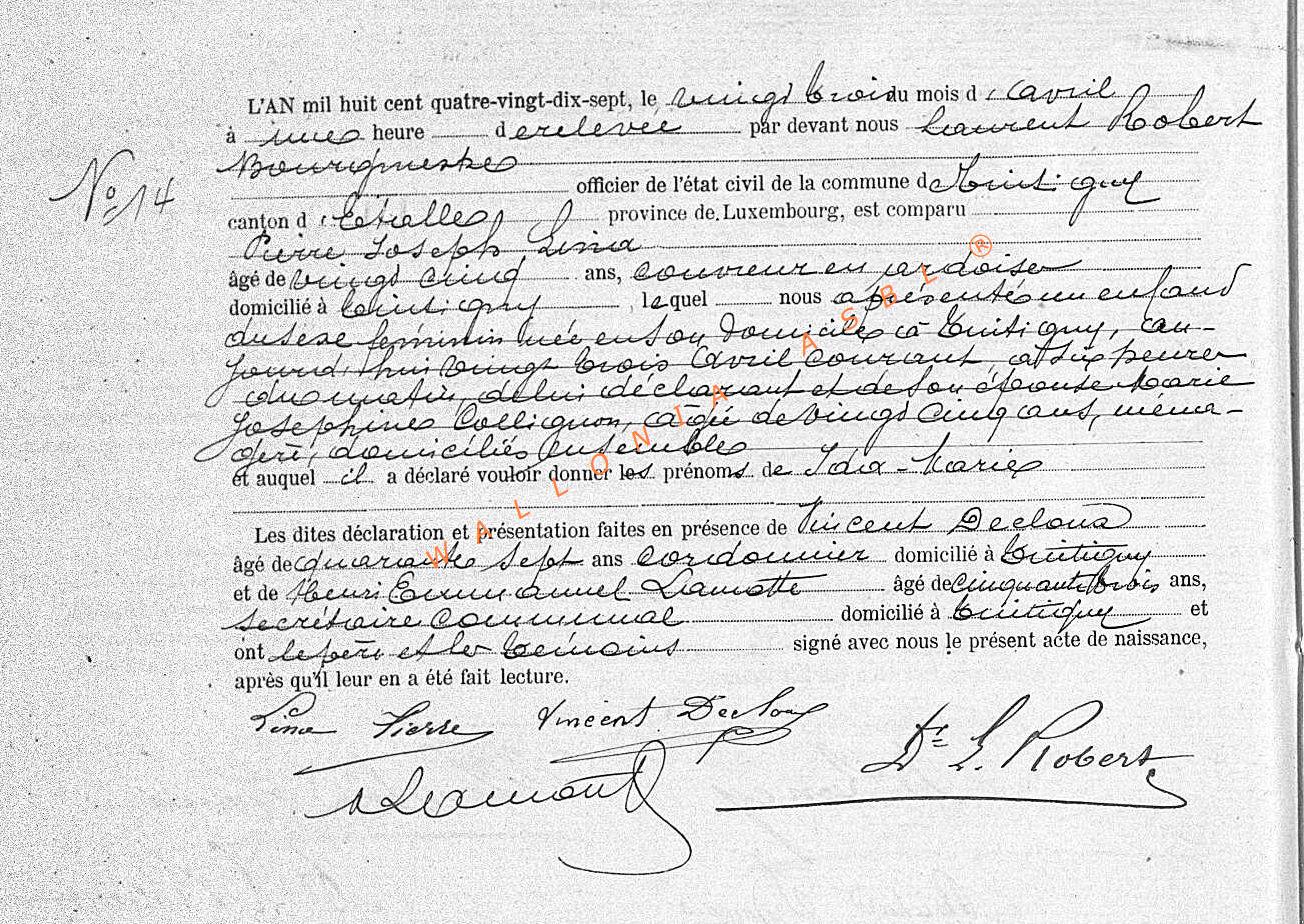 L'AN mil huit cent quatre-vingt-dix-sept, le vingt trois du mois d'avril
à une heure de relevée par devant nous Laurent Robert
Bourgmestre
officier de l'état civil de la commune de Tintigny
N° 14
canton d'Etalle province de Luxembourg, est comparu
Pierre Joseph Lina
âgé de vingt cinq ans, couvreur en ardoises
domicilié à Tintigny, lequel nous a présenté un enfant
du sexe féminin née en son domicile à Tintigny, au-
jourd'hui vingt trois avril courant, à six heures
du matin, de lui déclarant et de son épouse Marie
Josephine Collignon, âgée de vingt cinq ans, ména-
gère, domiciliés ensemble
et auquel il a déclaré vouloir donner les prénoms de Ida-Marie
Les dites déclaration et présentation faites en présence de Vincent Decloux
âgé de quarante sept ans cordonnier domicilié à Tintigny
et de Henri Emmanuel Lamotte âgé de cinquante trois ans,
secrétaire communal domicilié à Tintigny et
ont le père et les témoins signé avec nous le présent acte de naissance,
après qu'il leur en a été fait lecture.
Lina Pierre Vincent Decloux
Dr L. Robert
WALLONIA ASBL ®